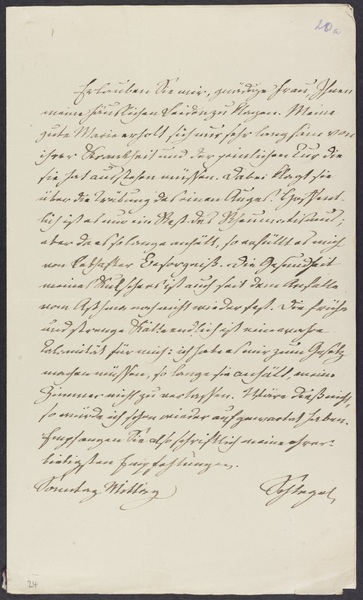 20a
Erlauben Sie mir, gnädige Frau, Ihnen
meine häuslichen Leiden zu klagen. Meine
gute Marie erholt sich nur sehr langsam von
ihrer Krankheit und der peinlichen Cur die
sie hat ausstehen müssen. Dabei klagt sie
über die Trübung des einen Auges. Hoffent-
lich ist es nur ein Rest des Rheumatismus;
aber da es so lange anhält, so erfüllt es mich
von lebhafter Besorgniß. Die Gesundheit
meines ist auch seit dem Anfalle
von Asthma noch nicht wieder fest. Die frühe
und strenge Kälte endlich ist eine wahre
Calamität für mich: ich habe es mir zum Gesetz
machen müssen, so lange sie anhält, meine
Zimmer nicht zu verlassen. Wäre dieß nicht,
so würde ich schon wieder aufgewartet haben.
Empfangen Sie also schriftlich meine ehrer-
bietigsten Empfehlungen.
Sonntag Mittag Schlegel
24